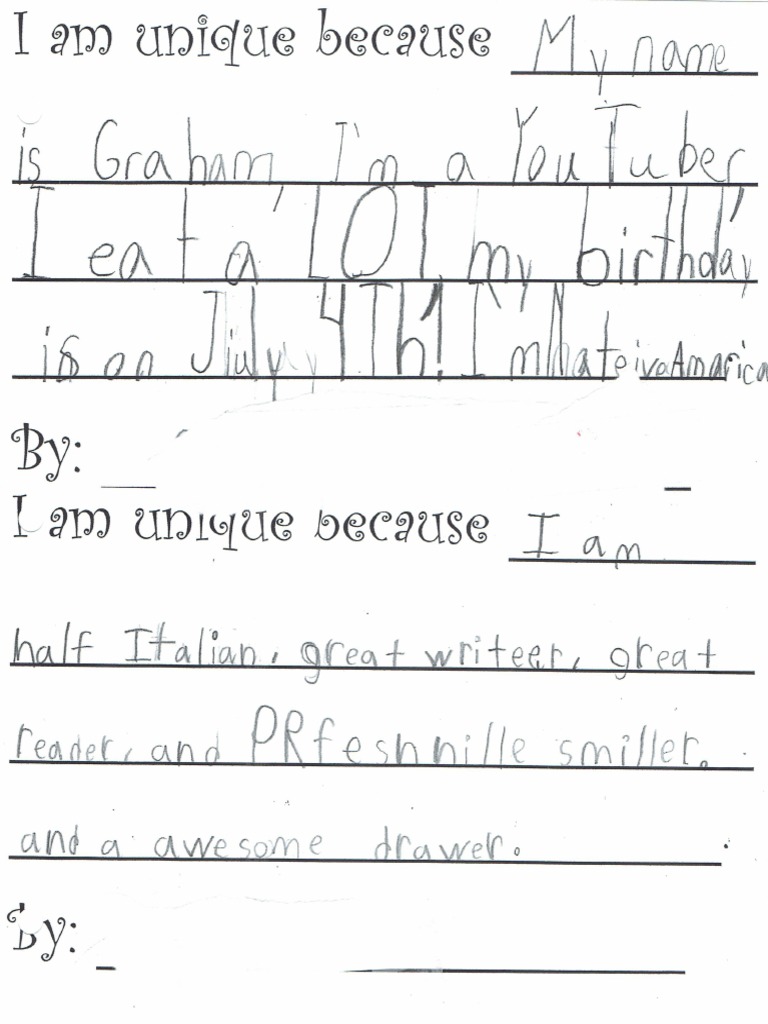 I am unique because My name
is Graham, I'm a YouTuber,
I eat a LOT, my birthday
is on July 4Th! I'm NateivaAmarica
By:
I am unique because I am
half Italian, great writeer, great
reader, and PRfeshnille smiller.
and a awesome drawer.
By: